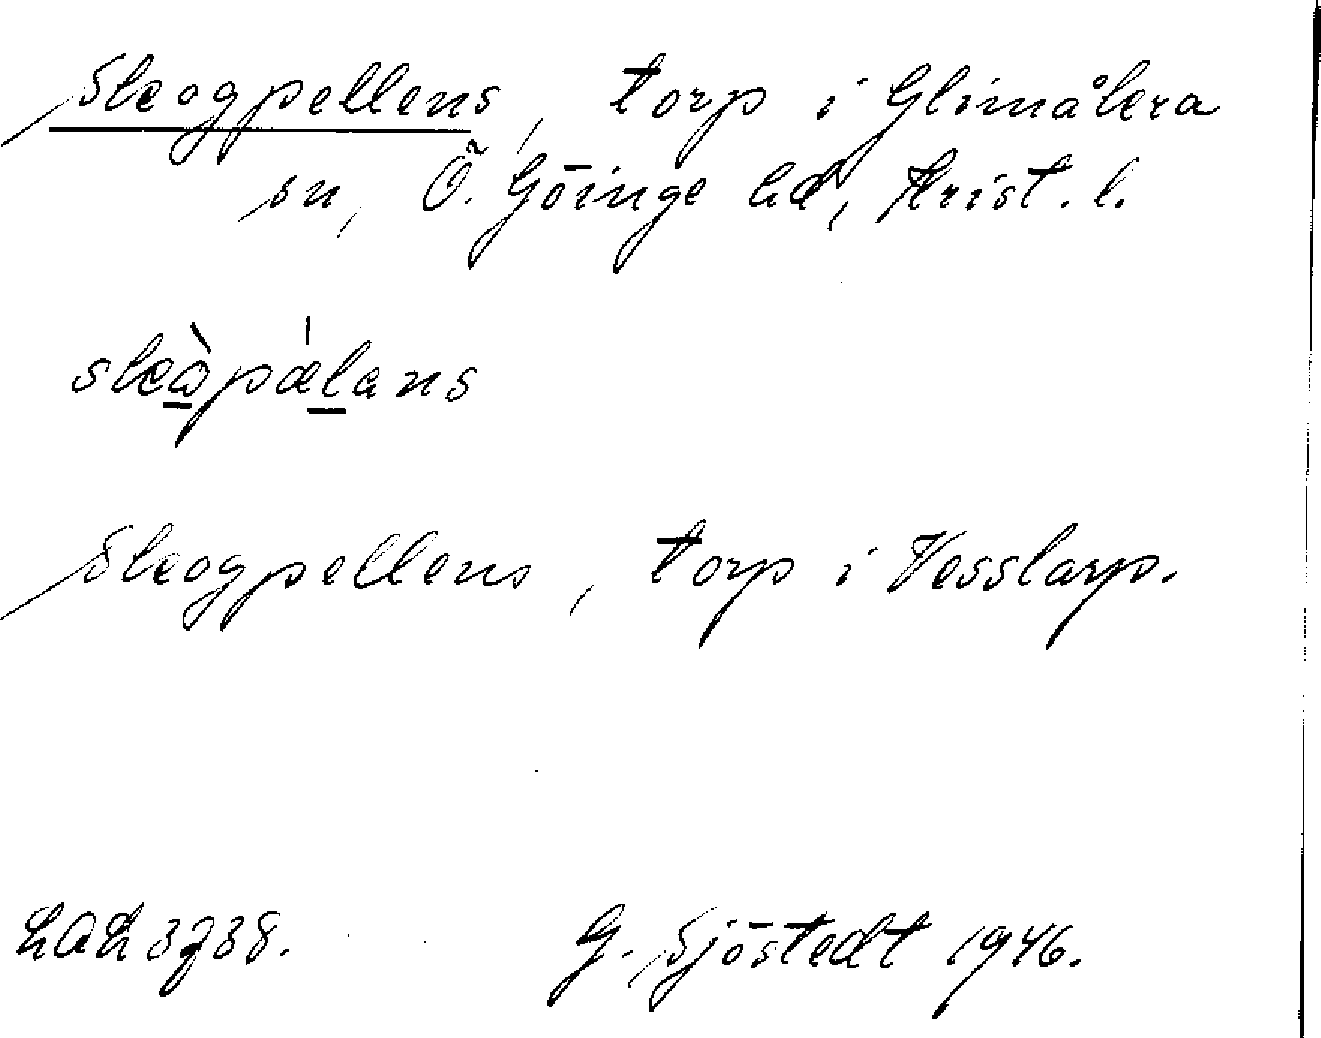 Skogpellens, torp i Glimåkra
sn, Ö. Göinge hd, Krist. l.
skåpælans
Skogpellens, torp i Vesslarp.
LAL 3738. G. Sjöstedt 1946.